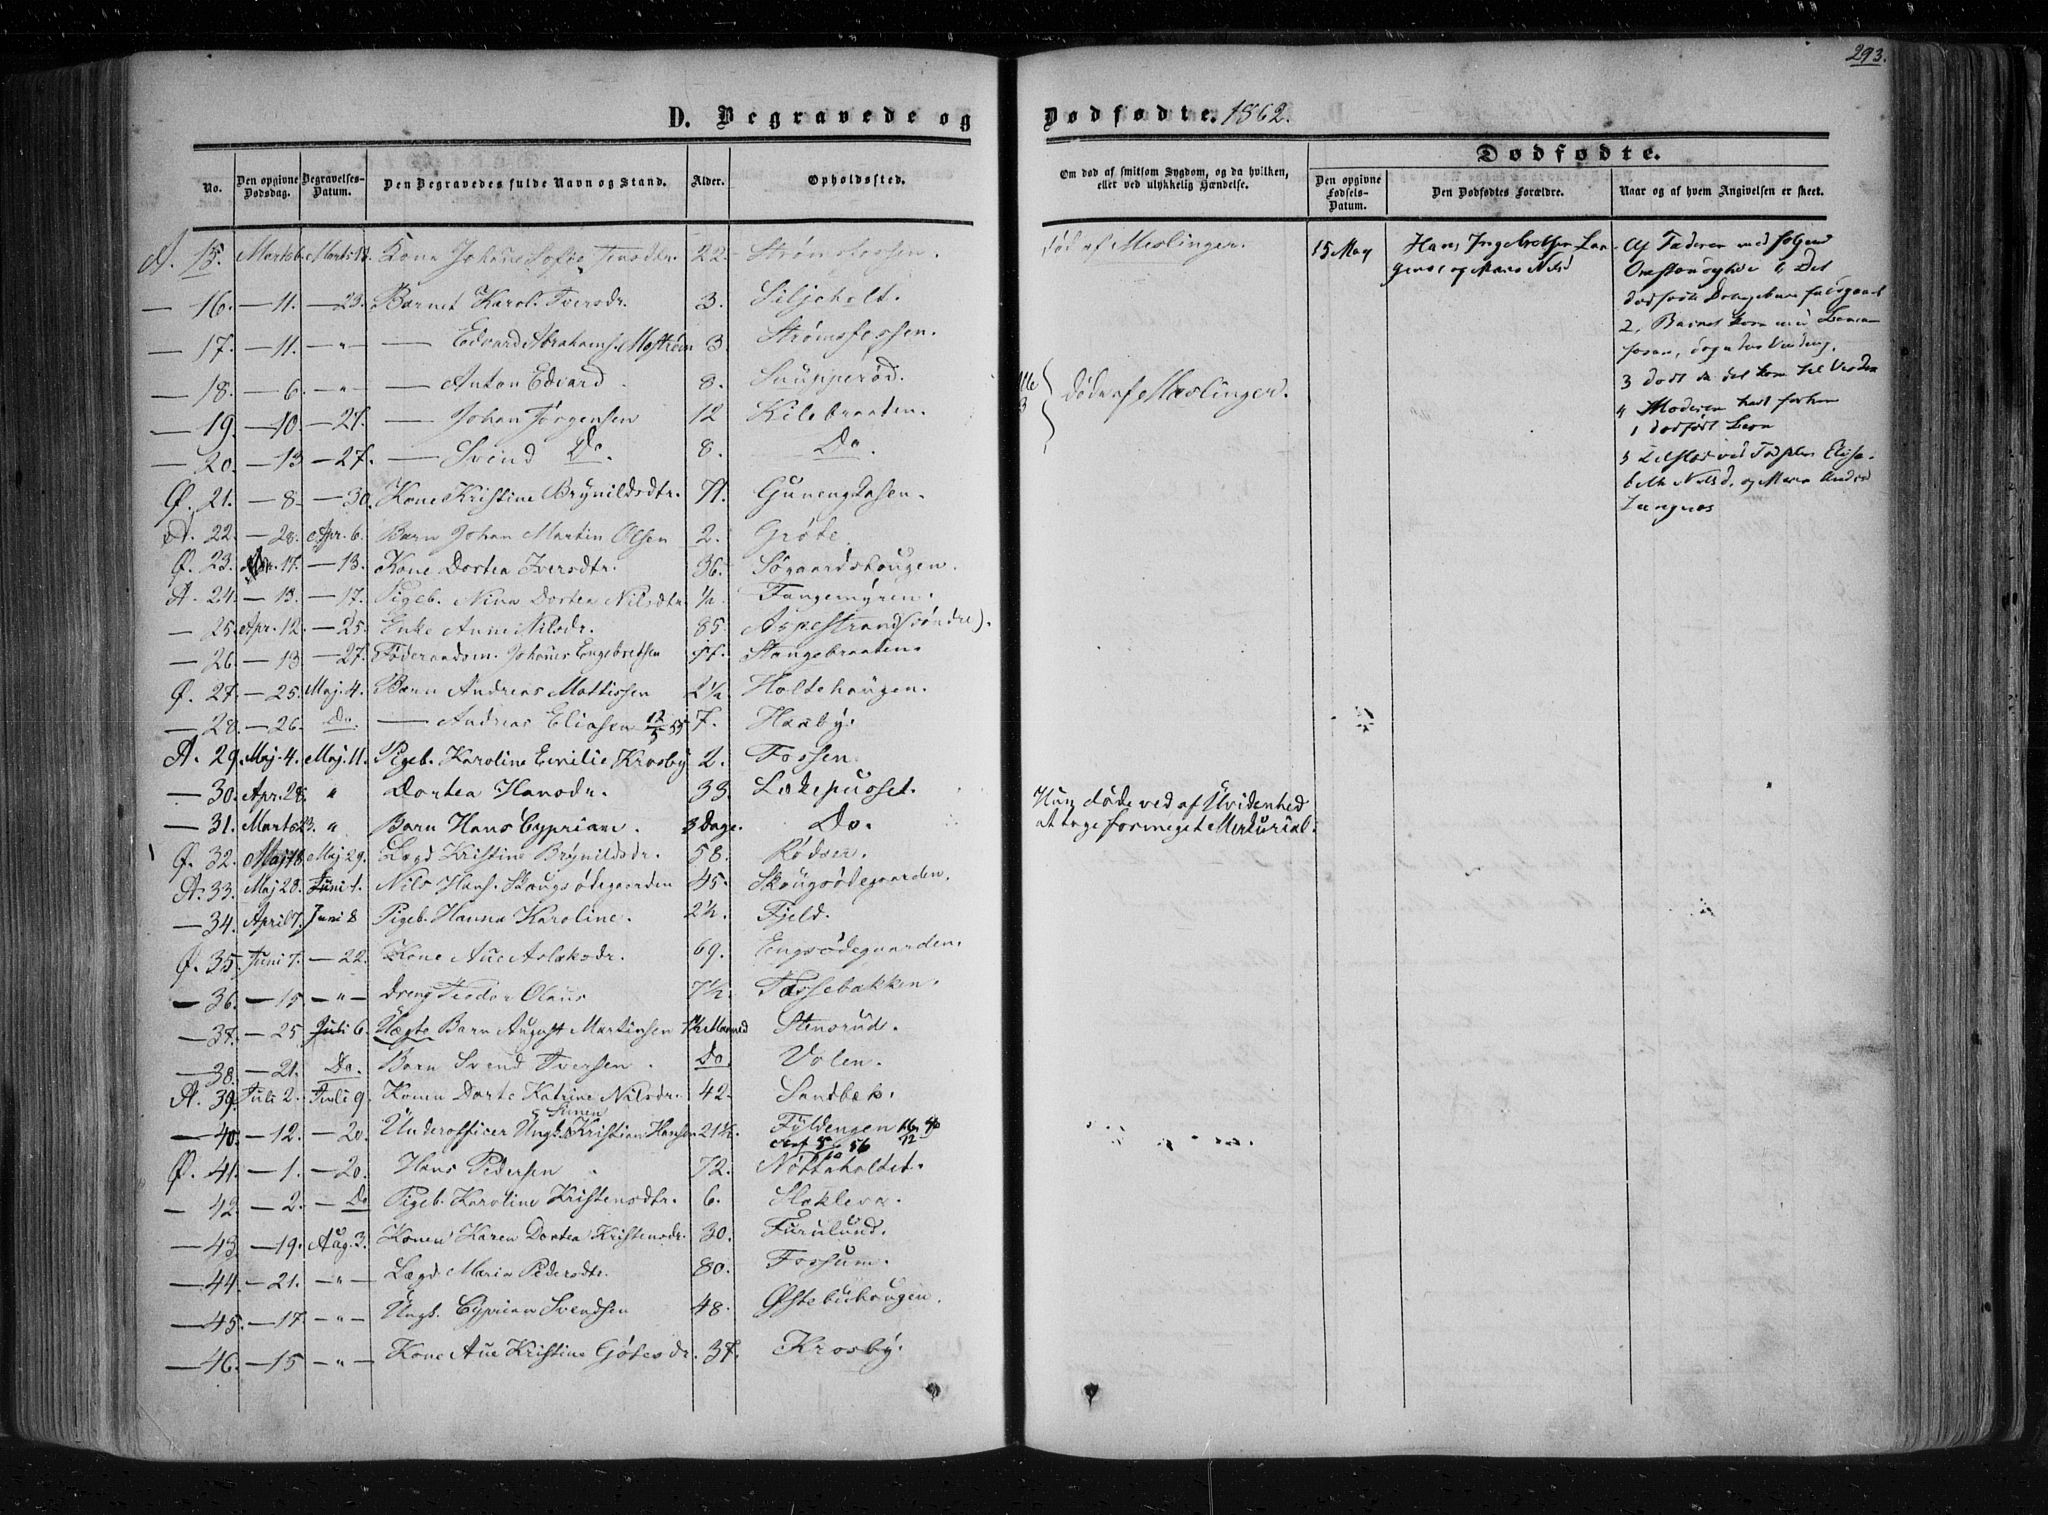 293.
D. Begravede og Dødfødte. 1862.
No. Den opgivne Dødsdag. Begravelses-Datum. Den Begravedes fulde Navn og Stand. Alder. Opholdssted.
Om død af smitsom Sygdom, og da hvilken, eller ved ulykkelig Hændelse.
Dødfødte.
Den opgivne Fødsels-Datum. Den Dødfødtes Forældre. Naar og af hvem Angivelsen er skeet.
A. 15. Marts 6. Marts Kone Johanne Sofie 22 Strømsfossen. død af Meslinger.
— 16. — 11. — 23. Barnet Karol. Iversdr. 3. Siljeholt.
— 17. — 11. — " — Edvard Abrahams. Mostrøm 3. Strømsfossen.
— 18. — 6. — " — — Anton Edvard 8. Snupperød.
— 19. — 10. — 27. — Johan Jørgensen 12 Kilebraaten. Døde af Meslinger.
— 20. — 13 — 27. — Svend Do. 8. Do.
Ø. 21. — 8 — 30. Kone Kristine Brynildsdtr. 71.
A. 22. — 28. Apr. 6. Barn Johan Martin Olsen 2. Grøte.
Ø. 23. 17. — 13. Kone Dortea Iversdtr. 36. Søgaardshougen.
A. 24. — 13. — 17. Pigeb. Nina Dortea Nilsdtr. ½ Tangemyren.
— 25. Apr. 12. — 25. Enke Anne Nilsdr. 85. Aspestrand (søndre).
— 26. — 13 — 27. Føderaadsm. Johanes Engebretsen Stangebraaten.
Ø. 27. — 25. Maj. 4. Barn Andreas Mattissen 2½. Holtehaugen.
— 28. — 26. Do. — Andreas Eliasen 12/5 55 7. Haaby.
A. 29. Maj. 4. Maj. 11. Pigeb. Karoline Emilie Krosby 2. Fossen.
— 30. Apr. 28. " Dortea Hansdr. 33. Lokepusset. Hun døde ved af Uvidenhed
— 31. Marts 23. " Barn Hans Cyprians. 3 Dage. Do. at tage for meget Merkurial.
Ø. 32. Maj 18. Maj 29. Lægd Kristine Brynildsdr. 58. Rødser.
A. 33. Maj 28. Juni 1. Nils Hans. Skaugsødegaarden 45. Skougsødegaarden.
— 34. April 7. Juni 8 Pigeb. Hanna Karoline. 2½. Fjeld.
Ø. 35. Juni 7. — 22. Kone Aue Aslaksdr. 69. Engsødegaarden.
— 36. — 15 — " — Dreng Teodor Olaus 7½. Tassebakken.
— 37. — 25. Juli 6. Uægte Barn August Martinsen 1½ Maaned Stenorud.
— 38. — 21. Do. Barn Svend Iversen. Do. Volen.
A. 39. Juli 2. Juli 9. Konen Dorte Katrine Nilsdr. 42. Sandbæk.
— 40. — 12. — 20. Underofficer Ungk. Simen Kristian Hansen 21½. Fyldengen 16/12 40
Conf 5/10 56
Ø. 41. — 1. — 20. Hans Pedersen 72. Nøttaholtet.
— 42. — 2. — Do Pigeb. Karoline Kristensdtr. 6. Slokleva.
— 43. — 19. Aug. 3. Konen Karen Dortea Kristensdr. 30. Furulund.
— 44. — 21. — " — Lægd. Maria Pedersdtr. 80. Fossum.
— 45. — 17. — " — Ungk. Cyprian Svendsen 48. Østebuhougen.
— 46. — 15 — " — Kone Aue Kristine Gøtesdr. 37. Krosby.
15 May Hans Ingebretsen Lan-
genes og Maren Nilsd
Af Faderen med følgende
2. Barnet kom med
3 dødt da det kom til Verden
4 Moderen havt forhen
1 dødfødt Barn
5
beth Nilsd. og Maren Andrd
Langnes